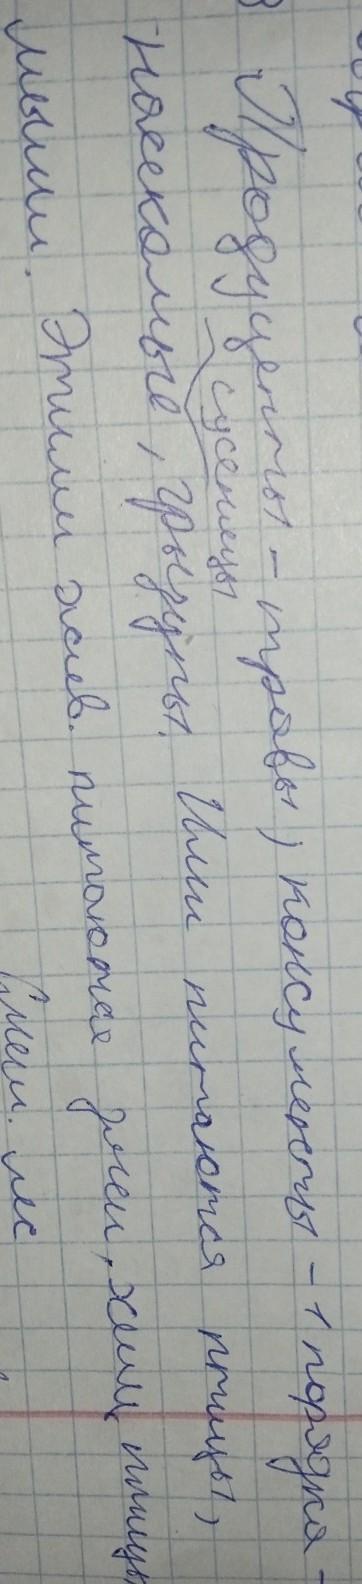 Продуценты – травы, консументы – 1 порядка –
гусеницы
насекомые, грызуны. Ими питаются птицы,
мыши. Этими жив. питаются змеи, хищ. птицы
Смеш. лес